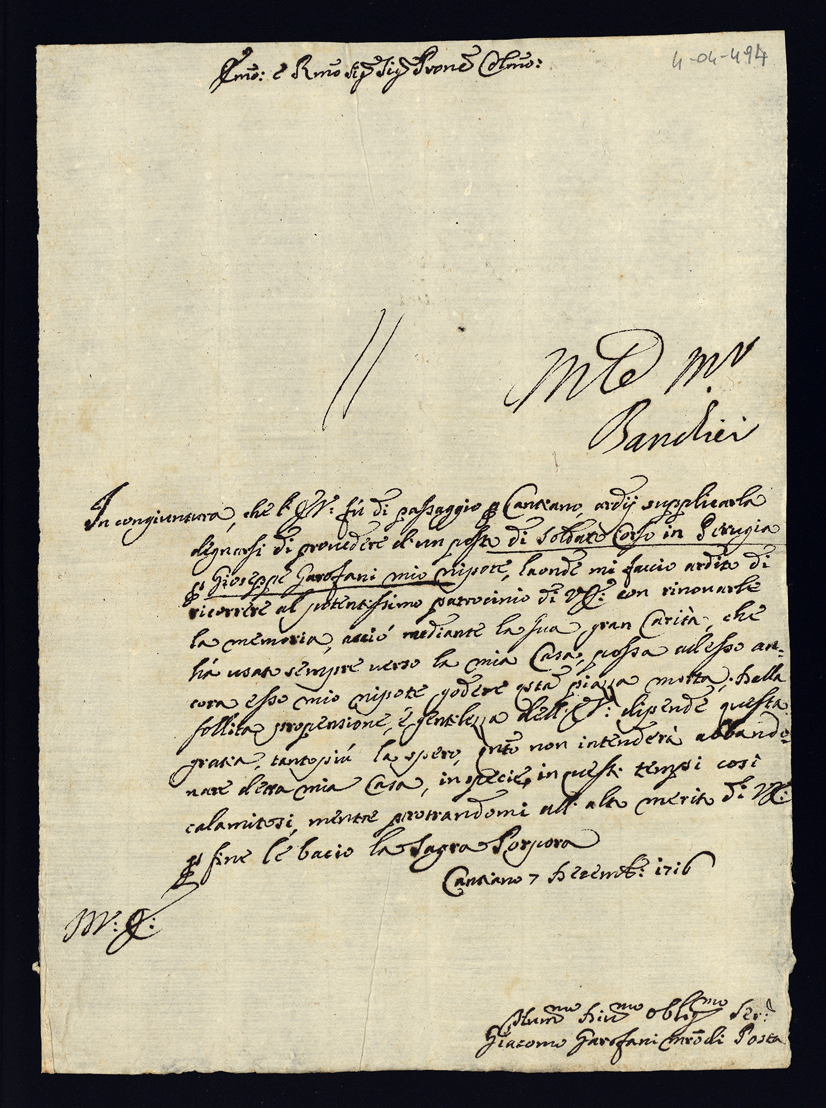 4-04-494
Em̃o: e Rm̃o Sig.r Sig.r Prone Colm̃o:
Bandiei
In congiuntura, che l'E.V.: fù di passaggio p Cantiano, ardij supplicarla
degnarsi di provedere d'un posto di Soldato Corso in Perugia
p Gioseppe Garofani mio nipote, laonde mi faccio ardito di
ricorrere al potentissimo patrocinio di V.E: con rinovarle
la memoria, acciò mediante la sua gran Carità, che
hà usata sempre verso la mia Casa, possa adesso an=
cora esso mio nipote godere qsta piazza morta, dalla
sollita propensione, e gentilezza dell'E.V: dipende questa
gratia, tanto più la spero, qnto non intenderà abbando=
nare detta mia Casa, in specie in questi tempi così
calamitosi, mentre prostrandomi all'alto merito di V.E:
p fine le bacio la Sagra Porpora
Cantiano 7 Decemb: 1716
Hummo Divmo Obligmo Ser.
Giacomo Garofani mrõ di Posta